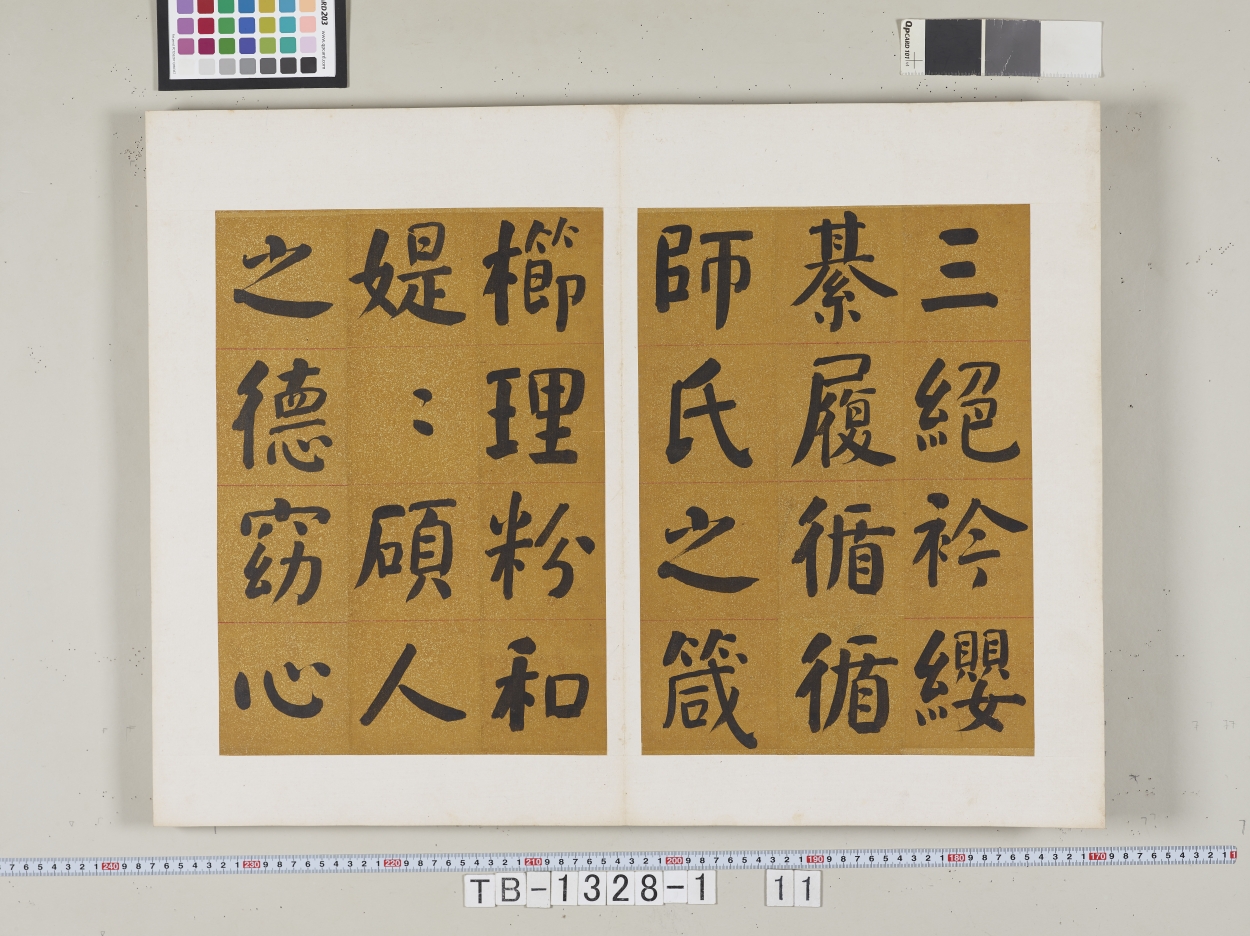 三絕衿纓
綦履循循
師氏之箴
櫛理粉和
媞〻碩人
之德窈心
TB-1328-1 11